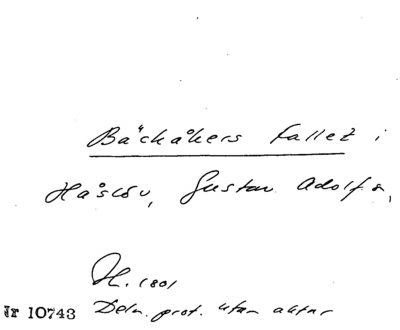 Bäckåkers Fallet i
Håslöv, Gustav Adolf s,
H. 1801
Nr 10743 Deln. prot. utan aktnr